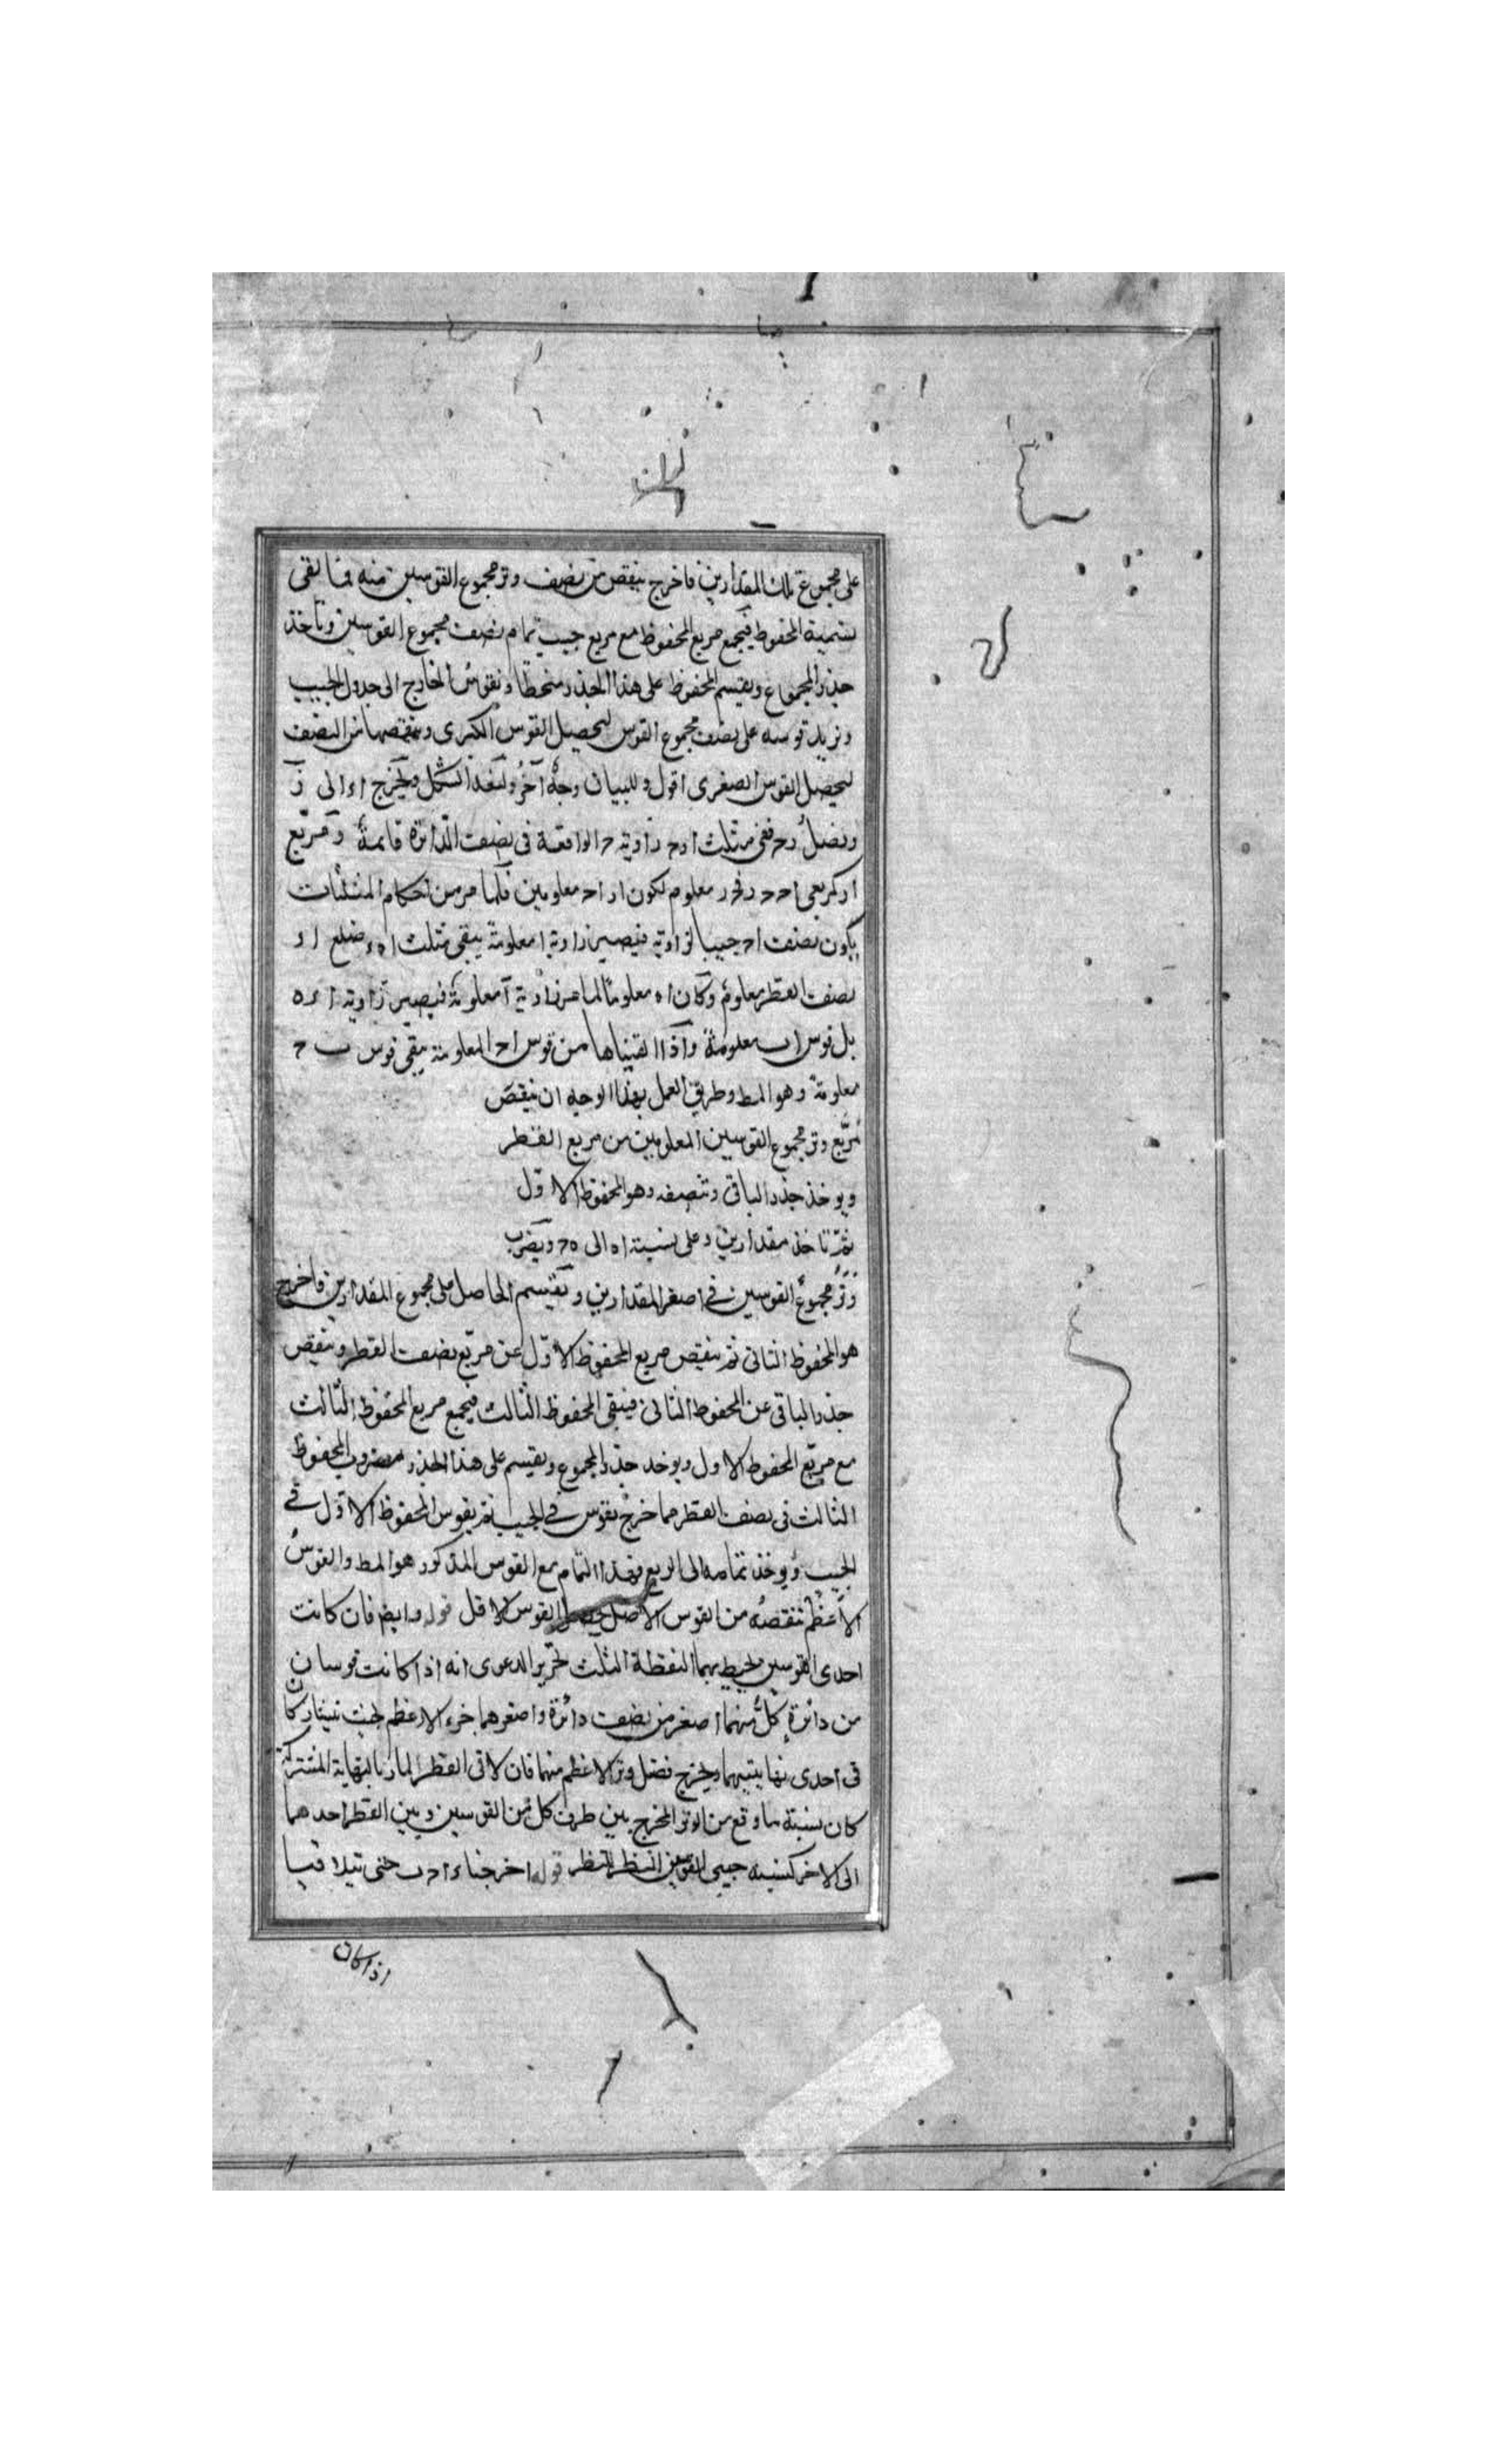 على مجموع تلك المقدارين فاخرج ينقص من نصف وتر مجموع القوسين منه فما بقى
نسمية المحفوظ فيجمع مربع المحفوظ مع مربع جيب تمام نصف مجموع القوسين وتأخذ
جذر المجموع ويقسم المحفوظ على هذا الجذر منحطا ونقوس الخارج الى جدول الجيب
ونزيد قوسه على نصف مجموع القوس ليحصل القوس الكبرى وننقصها من النصف
ليحصل القوس الصغرى اقول وللبيان وجه آخر ولنعد الشكل ولنخرج اء الى ر
ونصل رح ففى مثلث ا ر ح زاوية ح الواقعة فى نصف الدائرة قائمة ومربع
ار كمربعى اح ح ر فح ر معلوم لكون ار اح معلومين فلما مر من احكام المثلثات
يكون نصف اح جيبا لزاوية فيصير زاوية ا معلومة يبقى مثلث ا ه ء ضلع ا ء
نصف القطر معلوم وكان ا ه معلوما لما مر زاوية ا معلومة فيصير زاوية ا ء ه
بل قوس ا ب معلومة واذا القيناها من قوس اح المعلومة يبقى قوس ب ح
معلومة وهو المط وطريق العمل بهذا الوجه ان ينقص
مربع وتر مجموع القوسين المعلومين من مربع القطر
ويوخذ جذر الباقى وتنصفه وهو المحفوظ الاول
ثم تاخذ مقدارين وعلى نسبة اه الى ه ح ويضرب
وتر مجموع القوسين فى اصغر المقدارين ونقسم الحاصل على مجموع المقدارين فاخرج
هو المحفوظ الثانى ثم ينقص مربع المحفوظ الاول عن مربع نصف القطر وينقص
جذر الباقى عن المحفوظ الثانى فيبقى المحفوظ الثالث فيجمع مربع المحفوظ الثالث
مع مربع المحفوظ الاول ويوخد جذر المجموع ويقسم على هذا الجذر مضروب المحفوظ
الثالث فى نصف القطر مما خرج نقوس فى الجيب ثم يقوس المحفوظ الاول فى
الجيب ويوخذ تمامه الى الربع فهذا التمام مع القوس المذكور هو المط والقوس
الاعظم ننقصه من القوس الاصل ليحصل القوس الاقل قوله وايضا فان كانت
احدى القوسين يحيط بهما النقطة الثلث تحرير الدعوى انه اذا كانت قوسان
من دائرة كل منهما اصغر من نصف دائرة واصغرهما جزء الاعظم بحيث يتشاركا
فى احدى نهايتيهما ويخرج فضل وتر الاعظم منهما فان لاقى القطر المار بالنهاية المشتركة
كان نسبة ما وقع من الوتر المخرج بين طرف كل من القوسين وبين القطر احدهما
الى الاخر كنسبه جيبى القوسين النظر للنظر قوله اخرجناء ا ح ب حتى تيلاقيا
اذا كان